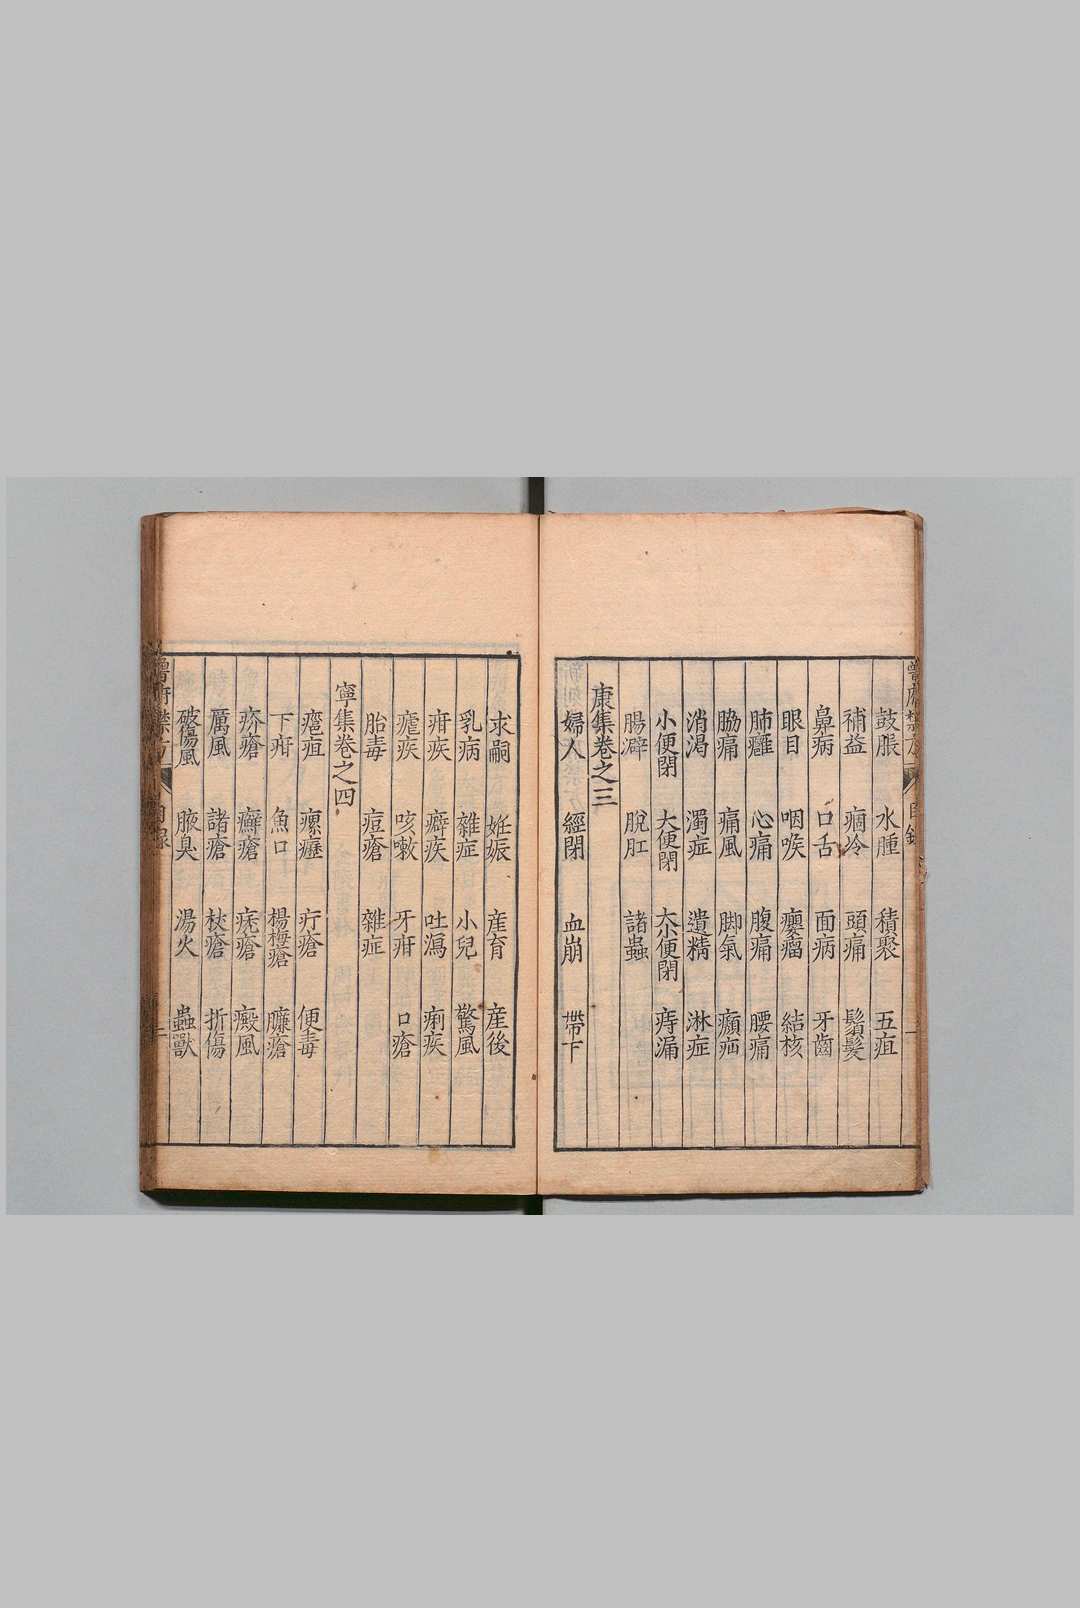 鼓脹　水腫　積聚　五疸
補益　痼冷　頭痛　鬚髮
鼻病　口舌　面病　牙齒
眼目　咽喉　癭瘤　結核
肺癰　心痛　腹痛　腰痛
脇痛　痛風　脚氣　癲疝
消渴　濁症　遺精　淋症
小便閉　大便閉　大小便閉　痔漏
腸澼　脫肛　諸蟲
康集卷之三
婦人　經閉　血崩　帶下
求嗣　姙娠　產育　產後
乳病　雜症　小兒　驚風
疳疾　癖疾　吐瀉　痢疾
瘧疾　咳嗽　牙疳　口瘡
胎毒　痘瘡　雜症
寧集卷之四
瘡疽　瘰癧　疔瘡　便毒
下疳　魚口　楊梅瘡　臁瘡
疥瘡　癬瘡　㾃瘡　癜風
厲風　諸瘡　杖瘡　折傷
破傷風　腋臭　湯火　蟲獸
魯府禁方　目錄